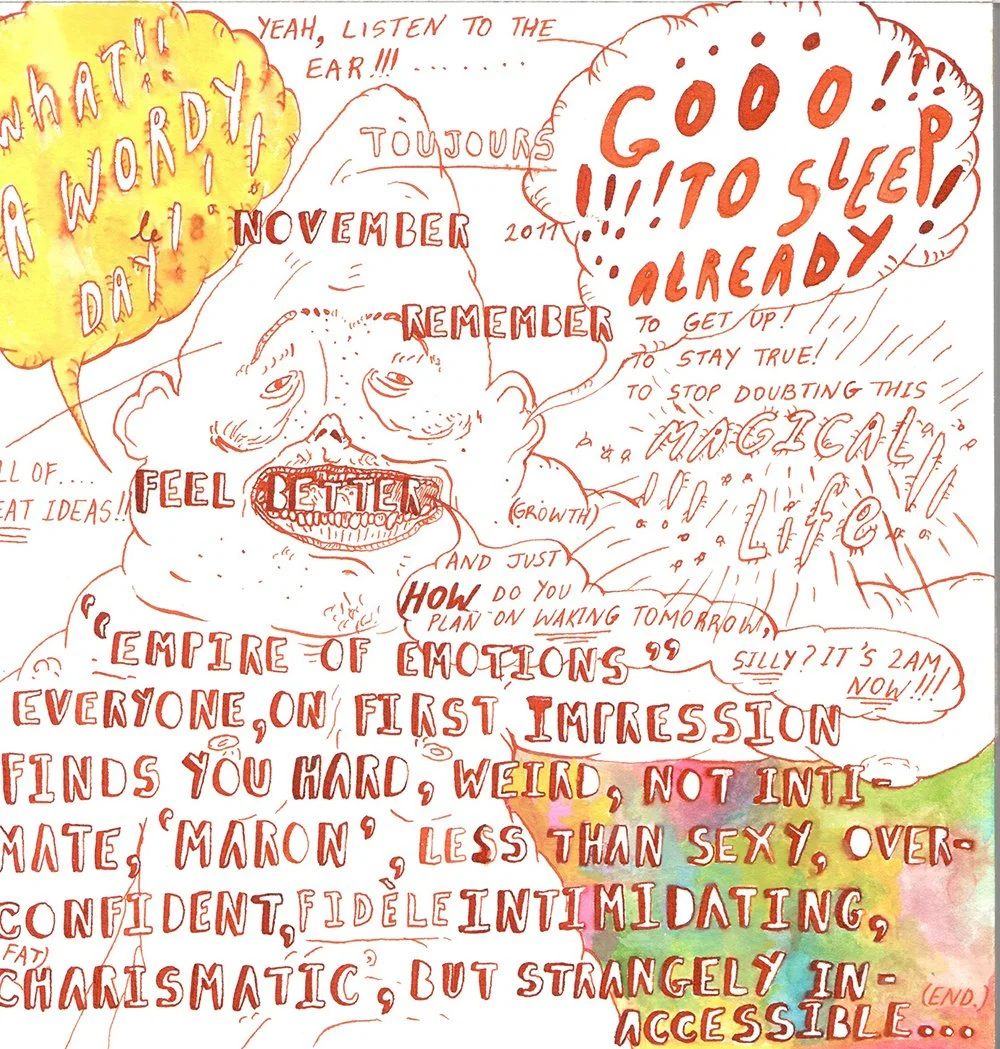 WHAT!!
A WORDY
DAY!
YEAH, LISTEN TO THE
EAR!!! ........
GOOO!!!
!!!! TO SLEEP!
ALREADY
TOUJOURS
NOVEMBER 2011
REMEMBER TO GET UP!
TO STAY TRUE!
TO STOP DOUBTING THIS
MAGICAL
Life
FEEL BETTER
LL OF....
EAT IDEAS!!
(GROWTH)
AND JUST
HOW DO YOU
PLAN ON WAKING TOMORROW,
SILLY? IT'S 2AM,
NOW!!!
"EMPIRE OF EMOTIONS"
EVERYONE, ON FIRST IMPRESSION
FINDS YOU HARD, WEIRD, NOT INTI-
MATE, 'MARON', LESS THAN SEXY, OVER-
CONFIDENT, FIDÈLE INTIMIDATING,
FAT)
CHARISMATIC, BUT STRANGELY IN-
ACCESSIBLE...
(END.)